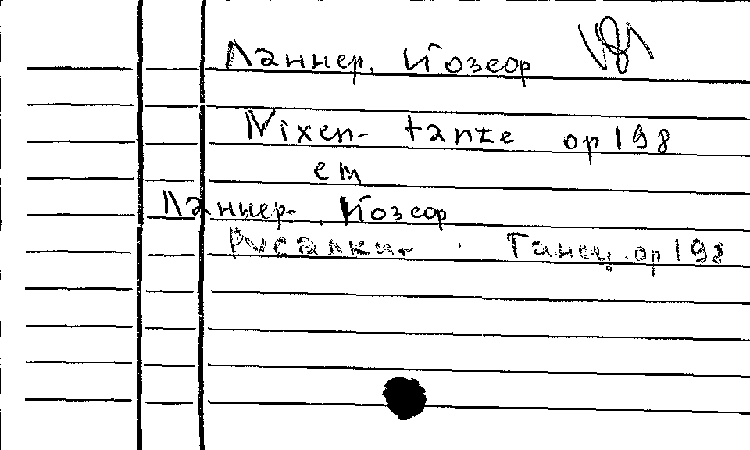 Ланнер. Йозеф
Nixen- tänze op 198
см
Ланнер. Йозеф
Русалки. Танец. op 198